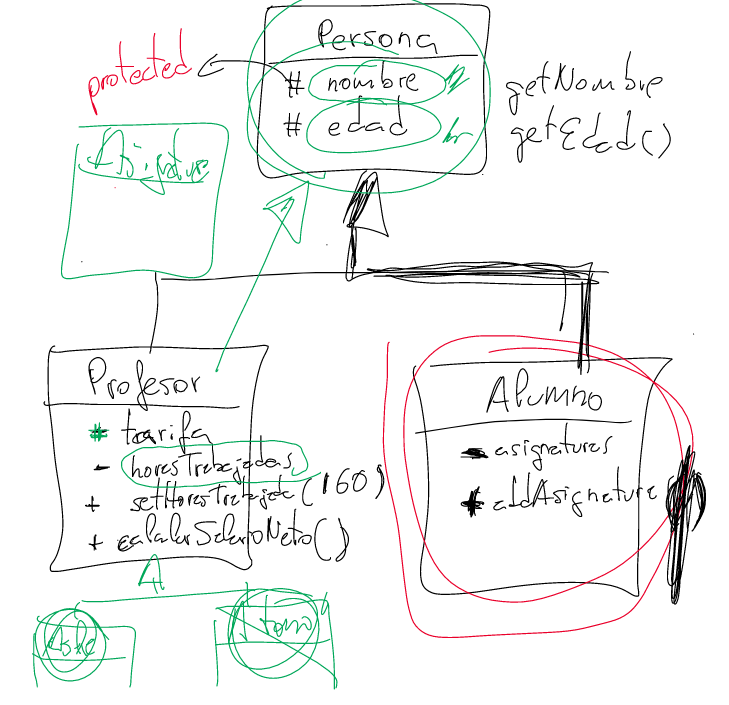 Persona
protected
# nombre
# edad
getNombre
getEdad()
Asignatura
Profesor
# tarifa
- horasTrabajadas
+ setHorasTrabajada(160)
+ calcularSalarioNeto()
Alumno
- asignaturas
+ addAsignatura